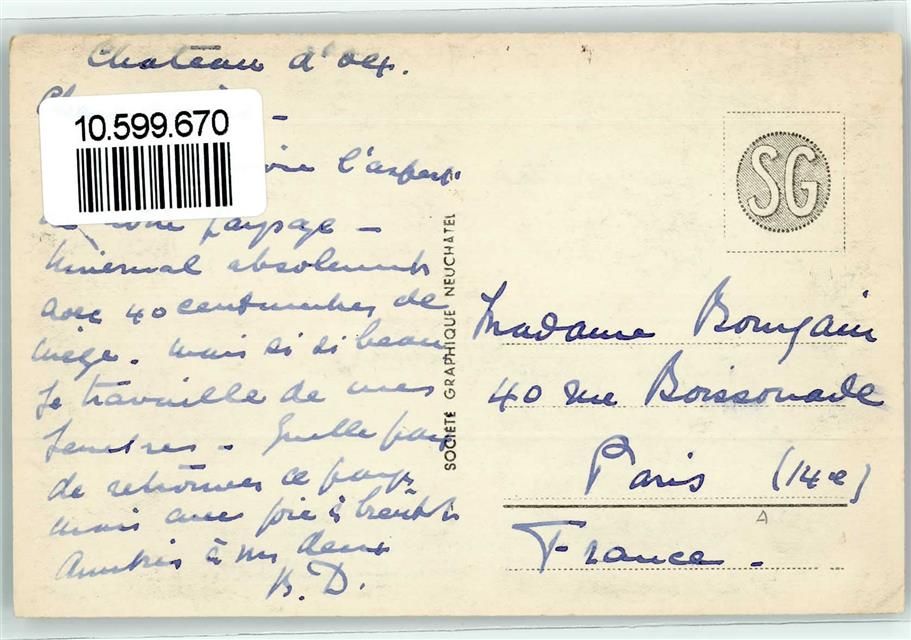 Chateau d'Oex.
10.599.670
l'aspect
paysage –
hivernal absolument
avec 40 centimetres de
neige. mais si si beau
Je travaille de mes
fenetres – Quelle
de retrouver ce pays
mais avec joie à bientôt
Amitiés à deux
B. D.
SOCIÉTÉ GRAPHIQUE NEUCHÂTEL
SG
Madame Bourgain
40 rue Boissonade
Paris (14e)
A
France.